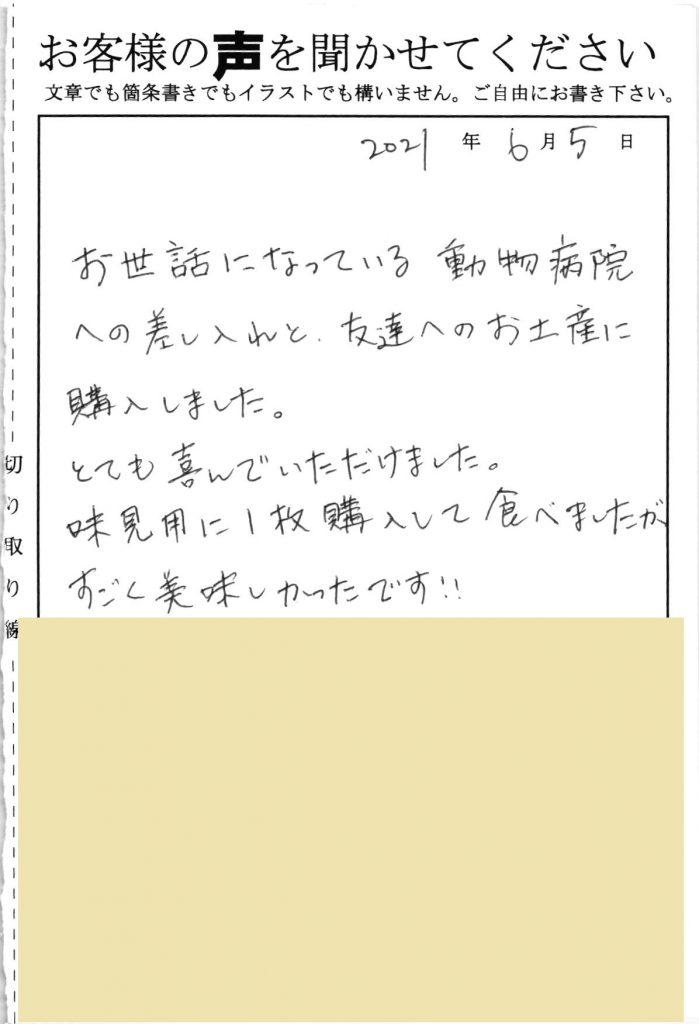 お客様の声を聞かせてください
文章でも箇条書きでもイラストでも構いません。ご自由にお書き下さい。
2021 年 6 月 5 日
お世話になっている 動物病院
への差し入れと、友達へのお土産に
購入しました。
とても喜んでいただけました。
味見用に1枚購入して食べましたが、
すごく美味しかったです!!
切り取り線